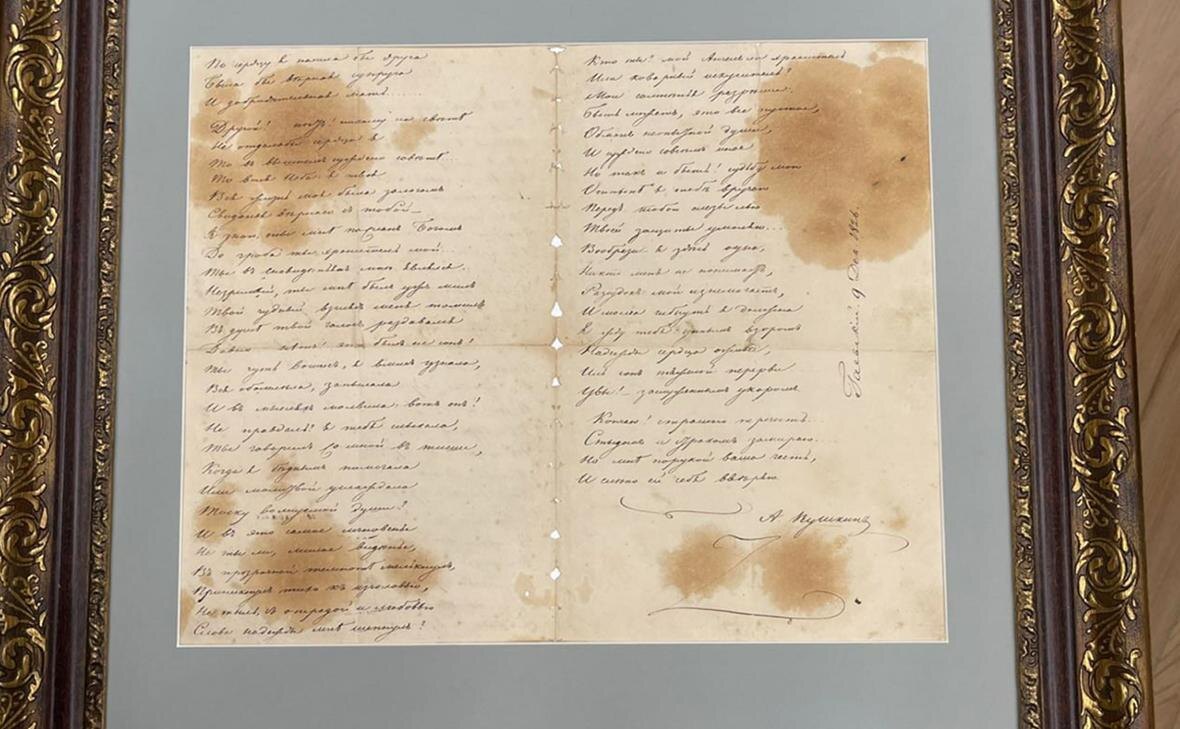 По сердцу я нашла бы друга
Была бы вѣрная супруга
И добродѣтельная мать......
Другой! нѣтъ! никому на свѣтѣ
Не отдала бы сердца я
То въ вышнемъ суждено совѣтѣ...
То воля Неба: я твоя
Вся жизнь моя была залогомъ
Свиданья вѣрнаго съ тобой_
Я знаю, ты мнѣ посланъ Богомъ
До гроба ты хранитель мой....
Ты въ сновидѣньяхъ мнѣ являлся.
Незримый, ты мнѣ былъ ужъ милъ
Твой чудный взглядъ меня томилъ
Въ душѣ твой голосъ раздавался
Давно нѣтъ! это былъ не сонъ!
Ты чуть вошелъ, я вмигъ узнала,
Вся обомлѣла, запылала
И въ мысляхъ молвила: вотъ онъ!
Не правдаль? я тебя слыхала,
Ты говорилъ со мной въ тиши,
Когда я бѣднымъ помогала
Или молитвой услаждала
Тоску волнуемой души?
И въ это самое мгновенье
Не ты ли, милое видѣнье,
Въ прозрачной темнотѣ мелькнулъ,
Приникнулъ тихо къ изголовью,
Не ты ль, съ отрадой и любовью
Слова надежды мнѣ шепнулъ?
Кто ты? мой Ангелъ ли хранитель
Или коварный искуситель?
Мои сомнѣнья разрѣши.
Быть можетъ, это все пустое,
Обманъ неопытной души,
И суждено совсѣмъ иное
Но такъ и быть! судьбу мою
Отнынѣ я тебѣ вручаю
Передъ тобою слезы лью
Твоей защиты умоляю...
Вообрази я здѣсь одна,
Никто меня не понимаетъ,
Разсудокъ мой изнемогаетъ,
И молча гибнуть я должна
Я жду тебя: единымъ взоромъ
Надежды сердца оживи,
Иль сонъ тяжелый перерви
Увы! _ заслуженнымъ укоромъ
Кончаю! страшно перечесть...
Стыдомъ и страхомъ замираю...
Но мнѣ порукой ваша честь,
И смѣло ей себя ввѣряю
А Пушкинъ
9 Дек 1826.